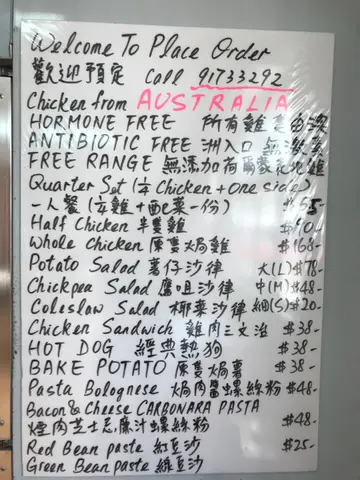 Welcome To Place Order
歡迎預定 Call 91733292
Chicken from AUSTRALIA
HORMONE FREE 所有雞 由澳
ANTIBIOTIC FREE 洲入口 無激素
FREE RANGE 無添加荷爾蒙走地雞
Quarter Set (¼ Chicken + one side)
一人餐 (¼雞 + 配菜一份) $55
Half Chicken 半隻雞 $90-
Whole Chicken 原隻焗雞 $168-
Potato Salad 薯仔沙律 大(L) $78-
Chickpea Salad 鷹咀沙律 中(M) $48-
Coleslaw Salad 椰菜沙律 細(S) $20-
Chicken Sandwich 雞肉三文治 $38-
HOT DOG 經典熱狗 $38-
BAKE POTATO 原隻焗薯 $38-
Pasta Bolognese 焗肉醬螺絲粉 $48-
Bacon & Cheese CARBONARA PASTA
煙肉芝士忌廉汁螺絲粉 $48-
Red Bean paste 紅豆沙 $25-
Green Bean paste 綠豆沙